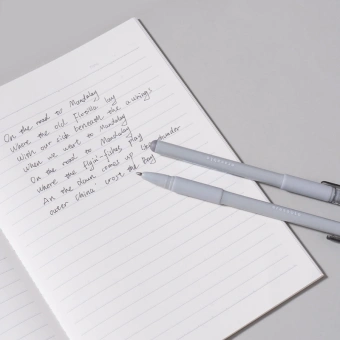 On the road to Mandalay
Where the old Flotilla lay
With our sick beneath the awnings
when we went to Mandalay
On the road to Mandalay
where the flyin-fishes Play
An the dawn comes up like thunder
outer china cross the Bay